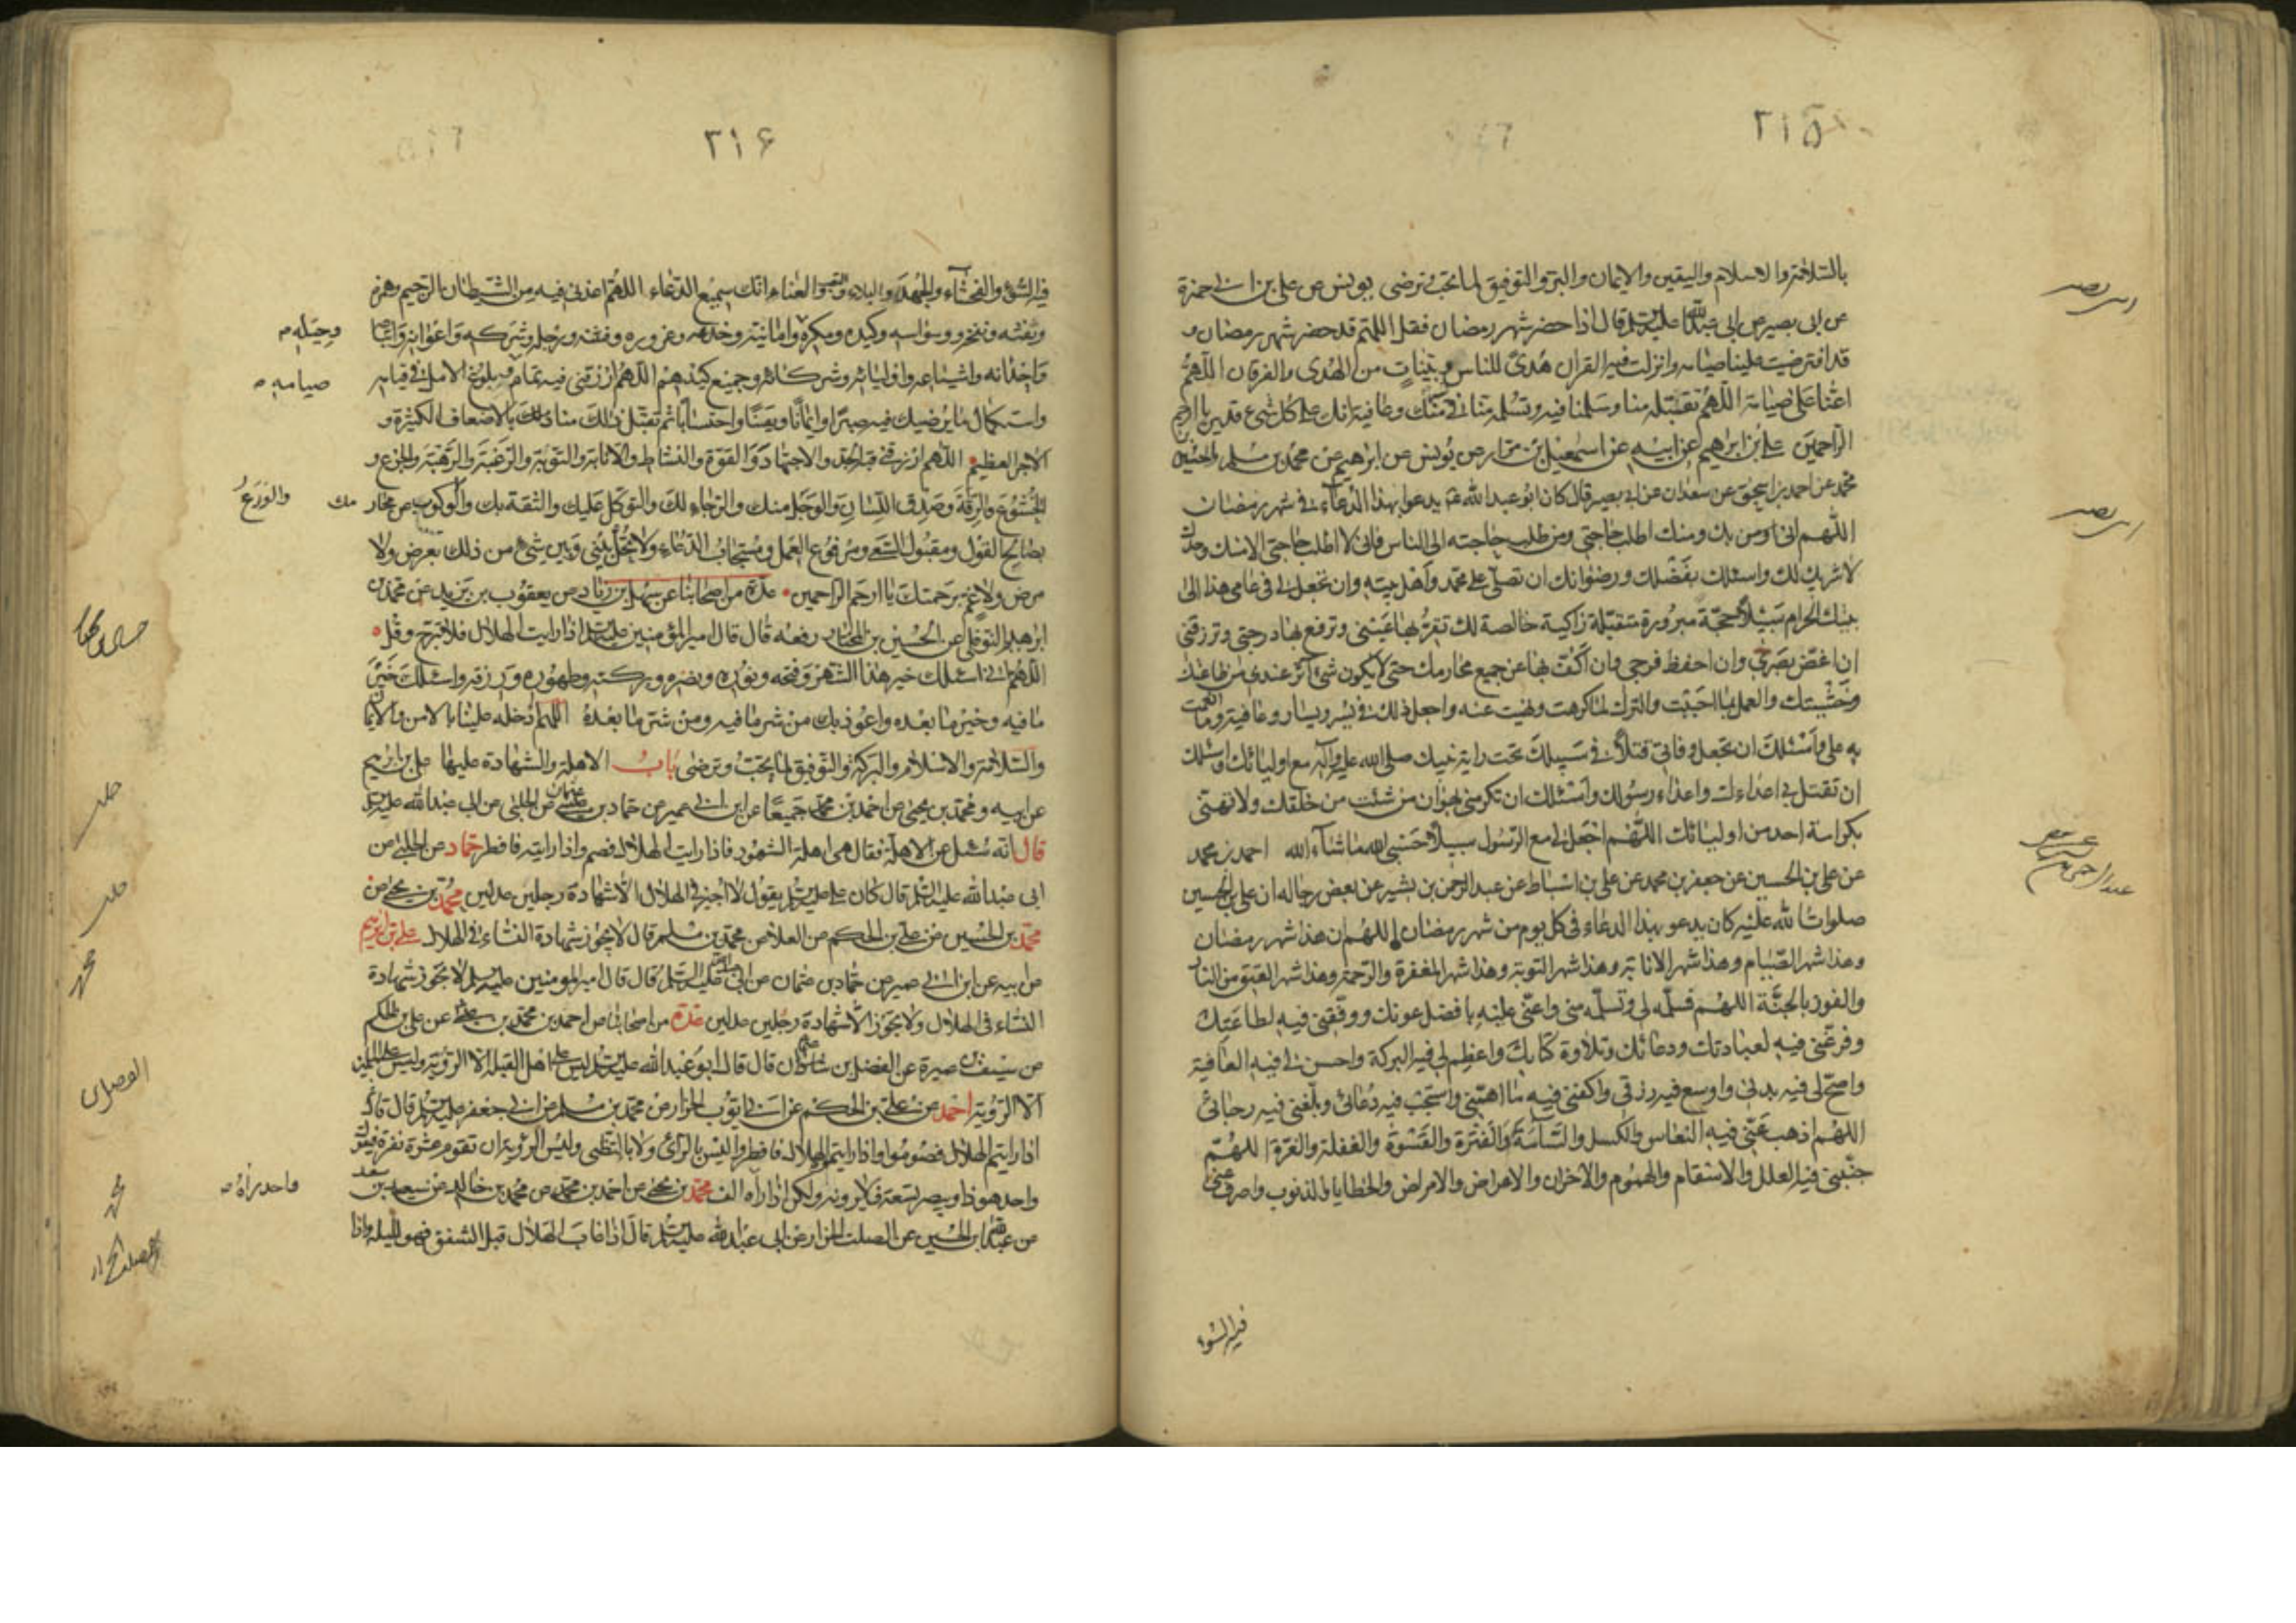 ٢١٥
بالسلامة والاسلام واليقين والايمان والبر والتوفيق لما تحب وترضى يونس عن على بن ابى حمزة
عن ابى بصير عن ابى عبدالله عليه السلم قال اذا حضر شهر رمضان فقل اللهم قد حضر شهر رمضان و
قد افترضت علينا صيامه وانزلت فيه القران هُدىً للناس وبيّناتٍ من الهُدى والفرقان اللّهمّ
اعنّا على صيامه اللّهمّ تقبّله منا وسَلّمنا فيه وتسلّمه منا في منك وعافية انك على كل شىء قدير يا ارحم
الراحمين على بن ابرهيم عن ابيه عن اسمعيل بن مرّار عن يُونس عن ابرهيم عن محمد بن مسلم
محمد عن احمد بن اسحق عن سعدان عن ابى بصير قال كان ابو عبد الله ع يدعو بهذا الدعاء فى شهر رمضان
اللّهم انى بك ومنك اطلب حاجتى ومن طلب حاجته الى الناس فانى لا اطلب حاجتى الا منك وحدك
لا شريك لك واسئلك بفضلك ورضوانك ان تصلّى على محمد واهل بيته وان تجعل لى فى عامى هذا الى
بيتك الحرام سبيلا حجّة مبرورة متقبّلة زاكية خالصة لك تقرّ بها عينى وترفع بها درجتى وترزقنى
ان اغضّ بصرى وان احفظ فرجى وان اكفّ بها عن جميع محارمك حتى لا يكون شىء آثر عندى من طاعتك
وخشيتك والعمل بما احببت والترك لما كرهت ونهيت عنه واجعل ذلك فى يسر ويسار وعافية وما انعمت
به علىّ واسئلك ان تجعل وفاتى قتلاً فى سبيلك تحت راية نبيك صلى الله عليه وآله مع اوليائك واسئلك
ان تقتل بى اعداءك واعداء رسولك واسئلك ان تكرمنى بهوان من شئت من خلقك ولا تهنّى
بكرامة احد من اوليائك اللّهم اجعل لى مع الرّسول سبيلاً حسبى الله ما شاء الله احمد بن محمد
عن على بن الحسين عن جعفر بن محمد عن على بن اسباط عن عبد الرحمن بن بشير عن بعض رجاله ان على بن الحسين
صلوات الله عليه كان يدعو بهذا الدعاء فى كل يوم من شهر رمضان اللهم ان هذا شهر رمضان
وهذا شهر الصّيام وهذا شهر الانابة وهذا شهر التوبة وهذا شهر المغفرة والرّحمة وهذا شهر العتق من النار
والفوز بالجنّة اللهم فسلّمه لى وتسلّمه منى واعنّى عليه بافضل عونك ووفّقنى فيه لطاعتك
وفرّغنى فيه لعبادتك ودعائك وتلاوة كتابك واعظم لى فيه البركة واحسن لى فيه العافية
واصحّ لى فيه بدنى واوسع فيه رزقى واكفنى فيه ما اهمّنى واستجب فيه دُعائى وبلّغنى فيه رجائى
اللهم اذهب عنّى فيه النعاس والكسل والسّآمة والفترة والقسوة والغفلة والغرّة اللهمّ
جنّبنى فيه العلل والاسقام والهموم والاحزان والاعراض والامراض والخطايا والذنوب واصرف عنّى
فيه السّوء
ابى بصير
ابى بصير
٢١۶
فيه السّوء والفحشاء والجهد والبلاء والتعب والعناء انّك سميع الدّعاء اللّهمّ اعذنى فيه من الشّيطان الرّجيم وهمزه
ونفثه ونفخه ووسواسه وكيده ومكره وامانيّه وخدعه وغروره ورجله وشركه واعوانه واتباعه
واخدانه واشياعه واوليائه وشركائه وجميع كيدهم اللّهمّ ارزقنى فيه تمام وبلوغ الامل فى قيامه
واستكمال ما يرضيك فيه صبرا وايمانا ويقينا واحتسابا ثم تقبّل ذلك منا بالاضعاف الكثيرة و
الاجر العظيم اللّهم ارزقنى فيه الجدّ والاجتهاد والقوّة والنشاط والانابة والتوبة والرغبة والرهبة والجزع و
الخشوع والرقّة وصدق اللّسان والوجل منك والرّجاء لك والتوكّل عليك والثقة بك والورع عن محارمك
بصالح القول ومقبول السّعى ومرفوع العمل ومستجاب الدعاء ولا تحل بينى وبين شىء من ذلك بعرض ولا
مرض ولا غم برحمتك يا ارحم الراحمين عدّة من اصحابنا عن سهل بن زياد عن يعقوب بن يزيد عن محمد بن
ابرهيم النوفلى عن الحسين بن المختار رفعه قال قال امير المؤمنين عليه السلم اذا رايت الهلال فلا تبرح وقل
اللّهم انى اسئلك خير هذا الشهر وفتحه ونوره ونصره وبركته وطهوره ورزقه واسئلك خير
ما فيه وخير ما بعده واعوذ بك من شر ما فيه ومن شرّ ما بعده اللّهم ادخله علينا بالامن والايمان
والسلامة والاسلام والبركة والتوفيق لما تحبّ وترضى باب الاهلة والشهادة عليها على بن ابرهيم
عن ابيه ومحمد بن يحيى عن احمد بن محمد جميعًا عن ابن ابى عمير عن حماد بن عثمان عن الحلبى عن ابى عبدالله عليه السلم
قال انه سئل عن الاهلّة فقال هى اهلة الشهور فاذا رايت الهلال فصم واذا رايته فافطر حماد عن الحلبى عن
ابى عبدالله عليه السّلم قال كان على عليه السلم يقول لا اجيز فى الهلال الا شهادة رجلين عدلين محمد بن يحيى عن
محمد بن الحسين عن على بن الحكم عن العلا عن محمد بن مسلم قال لا يجوز شهادة النساء فى الهلال على بن ابرهيم
عن ابيه عن ابن ابى عمير عن حمّاد بن عثمان عن ابى عبدالله عليه السّلم قال قال امير المومنين عليه السلم لا تجوز شهادة
النساء فى الهلال ولا يجوز الا شهادة رجلين عدلين عدّة من اصحابنا عن احمد بن محمد بن عن على بن الحكم
عن سيف بن عميرة عن الفضل بن عثمان قال قال ابو عبدالله عليه السلم ليس على اهل القبلة الا الرؤية وليس على المسلمين
الّا الرّؤية احمد عن على بن الحكم عن ابى ايّوب الخزاز عن محمد بن مسلم عن ابى جعفر عليه السلم قال قال
اذا رايتم الهلال فصوموا واذا رايتم الهلال فافطروا ليس بالرأى ولا بالتظنى وليس الرؤية ان تقوم عشرة نفر فيقول
واحد هو ذا ويبصر تسعة فلا يرونه ولكن اذا رآه الف محمد بن يحيى عن احمد بن محمد عن محمد بن خالد عن سعد بن سعد
عن عبدالله بن الحسين عن الصلت الخزاز عن ابى عبدالله عليه السلم قال اذا غاب الهلال قبل الشفق فهو لليلة واذا
وحيله
صيامه
والورع
واحد رآه
حلبى
حلبى
محمد
محمد